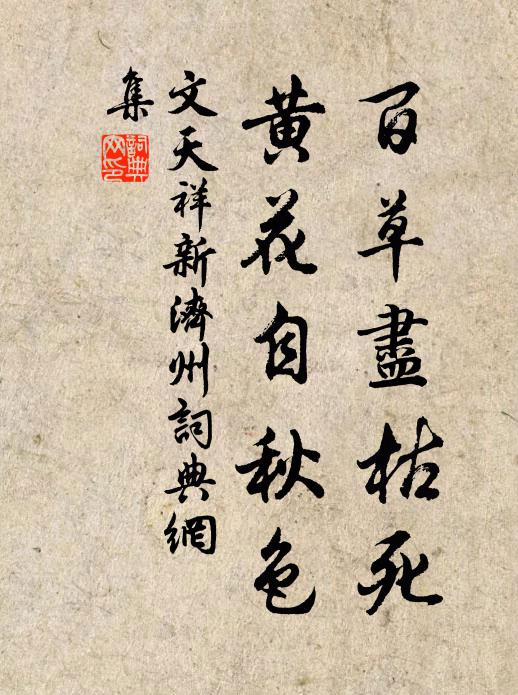 百草盡枯死
黄花自秋色
文天祥新濟州詞典網
集
詞典
网印